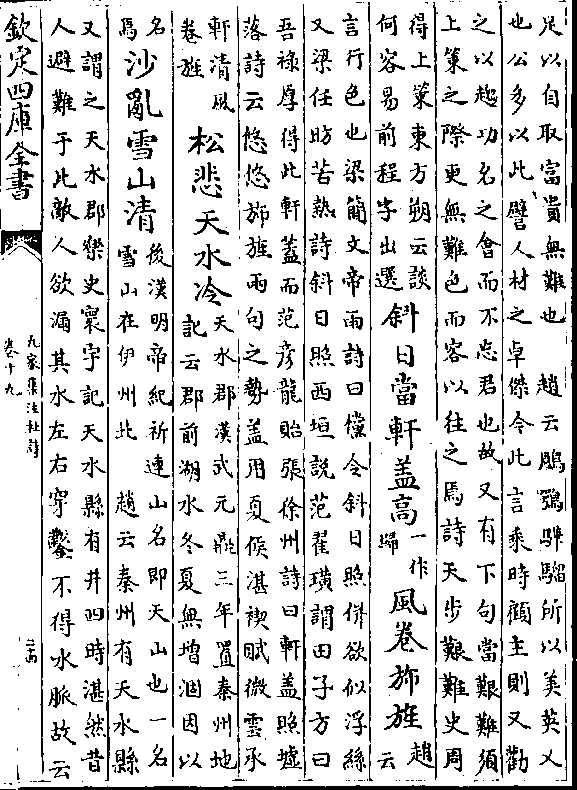 足以自取富貴無難也　趙云鵰鶚驊騮所以美英乂
也公多以此譬人材之卓傑今此言乘時顧主則又勸
之以趍功名之會而不忘君也故又有下句當艱難須
上策之際更無難色而容以往之焉詩天步艱難史周
得上策東方朔云談
何容易前程字出選
斜日當軒蓋高
一作
歸
風卷斾旌
趙
云
言行色也梁簡文帝雨詩曰儻令斜日照併欲似浮絲
又梁任昉苦熱詩斜日照西垣説范翟璜謂田子方曰
吾祿厚得此軒蓋而范彦龍貽張徐州詩曰軒蓋照墟
落詩云悠悠斾旌兩句之勢蓋用夏侯湛禊賦微雲承
軒清風
卷旌
松悲天水冷
天水郡漢武元鼎三年置秦州地
記云郡前湖水冬夏無增涸因以
名
焉
沙亂雪山清
後漢明帝紀祈連山名即天山也一名
雪山在伊州北　趙云秦州有天水縣
又謂之天水郡樂史寰宇記天水縣有井四時湛然昔
人避難于此敵人欲漏其水左右穿鑿不得水脈故云
欽定四庫全書
九家集注杜詩
卷十九